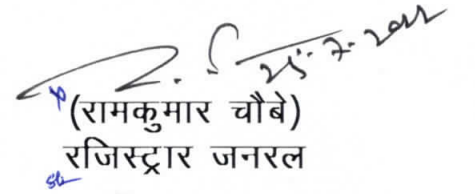 25.7.2022
(रामकुमार चौबे)
रजिस्ट्रार जनरल